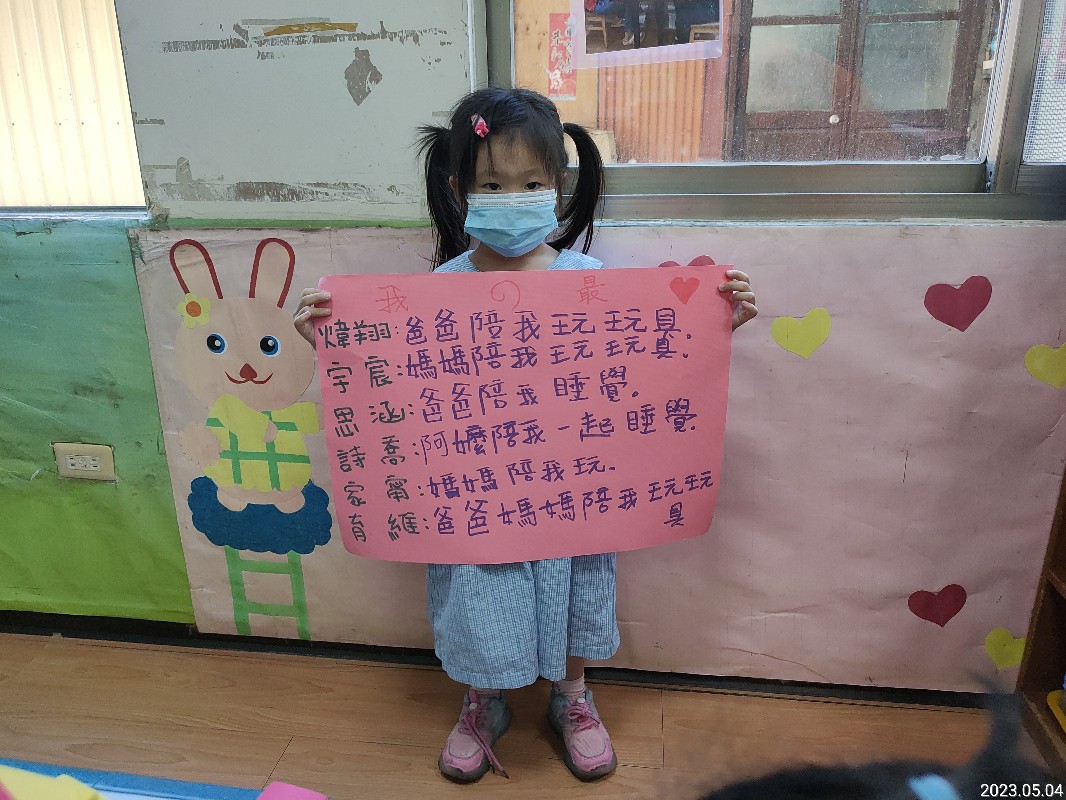 我 最
煒翔:爸爸陪我玩玩具.
宇宸:媽媽陪我玩玩具.
思涵:爸爸陪我睡覺.
詩喬:阿嬤陪我一起睡覺.
家甯:媽媽陪我玩.
育維:爸爸媽媽陪我玩玩
具
2023.05.04